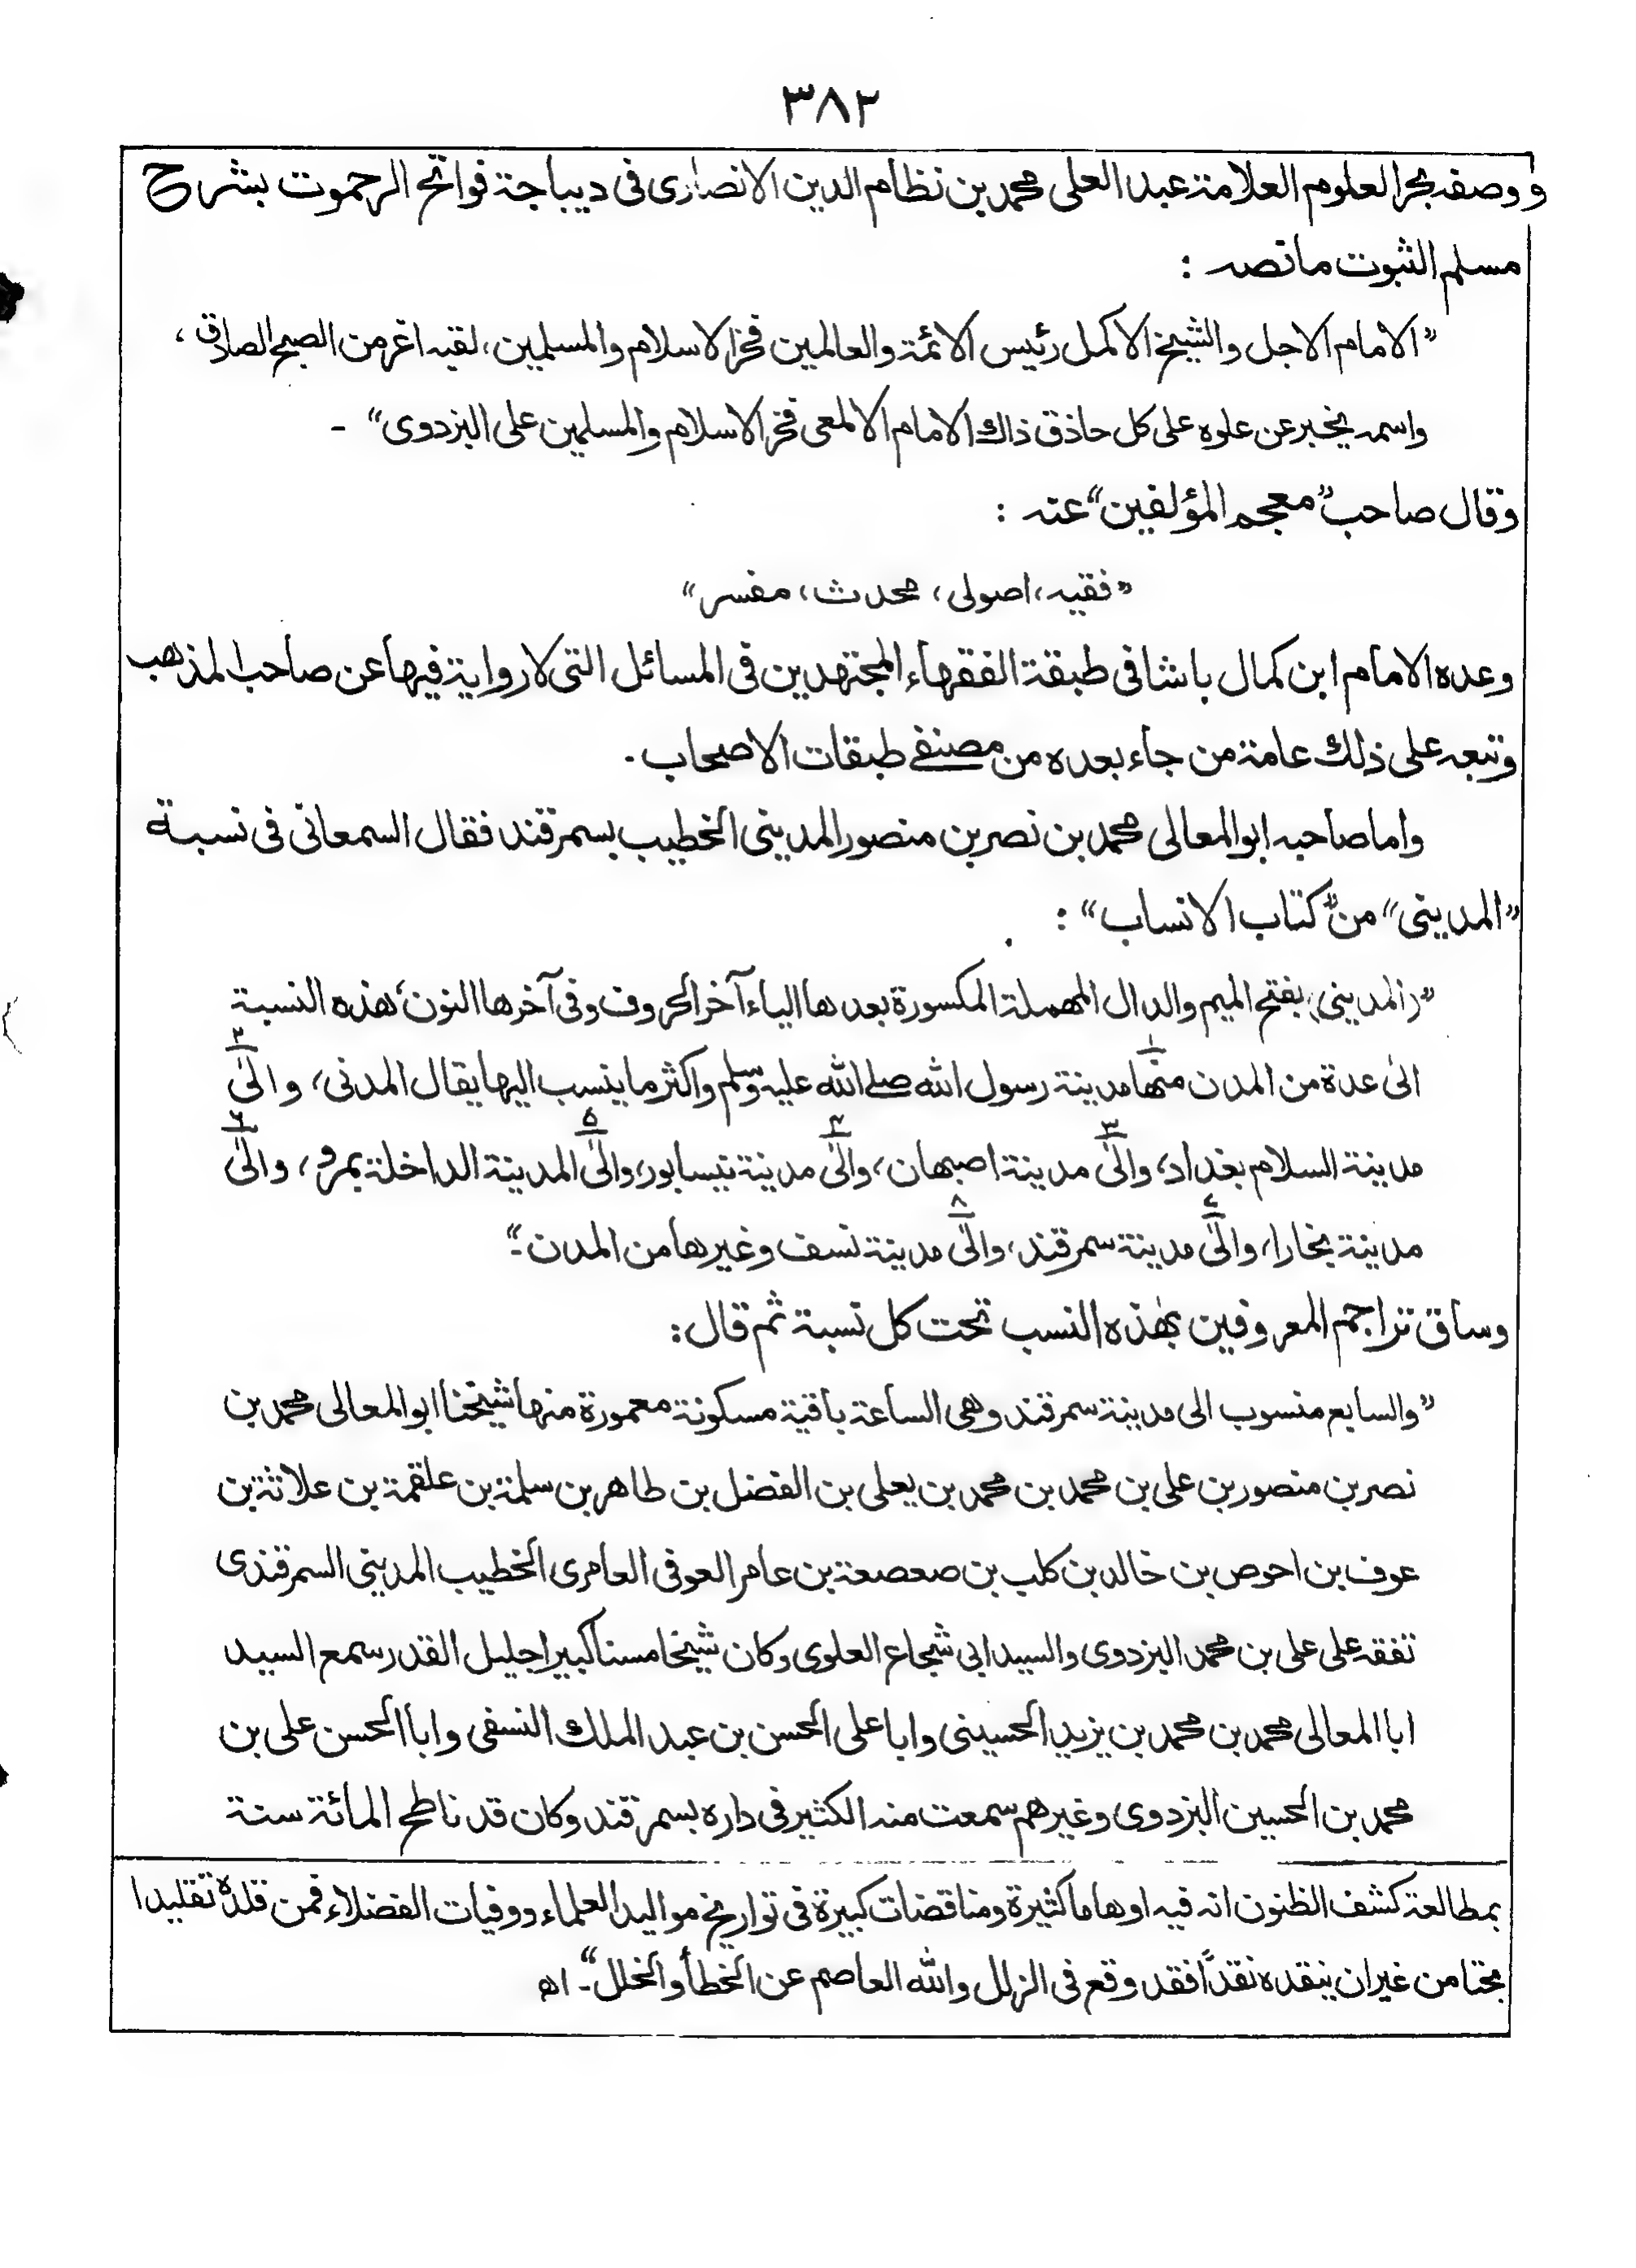 ٣٨٢
ووصفه بحر العلوم العلامة عبد العلى محمد بن نظام الدين الانصارى فى ديباجة فواتح الرحموت بشرح
مسلم الثبوت مانصه :
”الامام الاجل والشيخ الاكمل رئيس الائمة والعالمين فخر الاسلام والمسلمين، لقبه اغر من الصبح الصادق،
واسمه يخبر عن علوه على كل حاذق ذاك الامام الالمعى فخر الاسلام والمسلمين على البزدوى“ -
وقال صاحب ”معجم المؤلفين“ عنه :
”فقيه، اصولى، محدث، مفسر“
وعده الامام ابن كمال باشا فى طبقة الفقهاء المجتهدين فى المسائل التى لا رواية فيها عن صاحب المذهب
وتبعه على ذلك عامة من جاء بعده من مصنفے طبقات الاصحاب .
واما صاحبه ابو المعالى محمد بن نصر بن منصور المدينى الخطيب بسمرقند فقال السمعانى فى نسبة
”المدينى“ من ”كتاب الانساب“ :
”(المدينى) بفتح الميم والدال المهملة المكسورة بعدها الياء آخر الحروف وفى آخرها النون، هذه النسبة
الى عدة من المدن منها ١ مدينة رسول الله صلے الله عليه وسلم واكثر ما ينسب اليها يقال المدنى، والى ٢
مدينة السلام بغداد، والى ٣ مدينة اصبهان، والى ۴ مدينة نيسابور، والى ۵ المدينة الداخلة بمرو، والى ۶
مدينة بخارا، والى ٧ مدينة سمرقند، والى ٨ مدينة نسف وغيرها من المدن“-
وساق تراجم المعروفين بهذه النسب تحت كل نسبة ثم قال:
”والسابع منسوب الى مدينة سمرقند وهى الساعة باقية مسكونة معمورة منها شيخنا ابو المعالى محمد بن
نصر بن منصور بن على بن محمد بن محمد بن يعلى بن الفضل بن طاهر بن سلمة بن علقمة بن علاثة بن
عوف بن احوص بن خالد بن كلب بن صعصعة بن عامر العوفى العامرى الخطيب المدينى السمرقندى
تفقه على على بن محمد البزدوى والسيد ابى شجاع العلوى وكان شيخا مسنا كبيرا جليل القدر سمع السيد
ابا المعالى محمد بن محمد بن يزيد الحسينى وابا على الحسن بن عبد الملك النسفى وابا الحسن على بن
محمد بن الحسين البزدوى وغيرهم سمعت منه الكثير فى داره بسمرقند وكان قد ناطح المائة سنة
بمطالعة كشف الظنون انه فيه اوهاما كثيرة ومناقضات كبيرة فى تواريخ مواليد العلماء ووفيات الفضلاء فمن قلده تقليدا
بحتا من غير ان ينقده نقداً فقد وقع فى الزلل والله العاصم عن الخطأ والخلل“- اھ